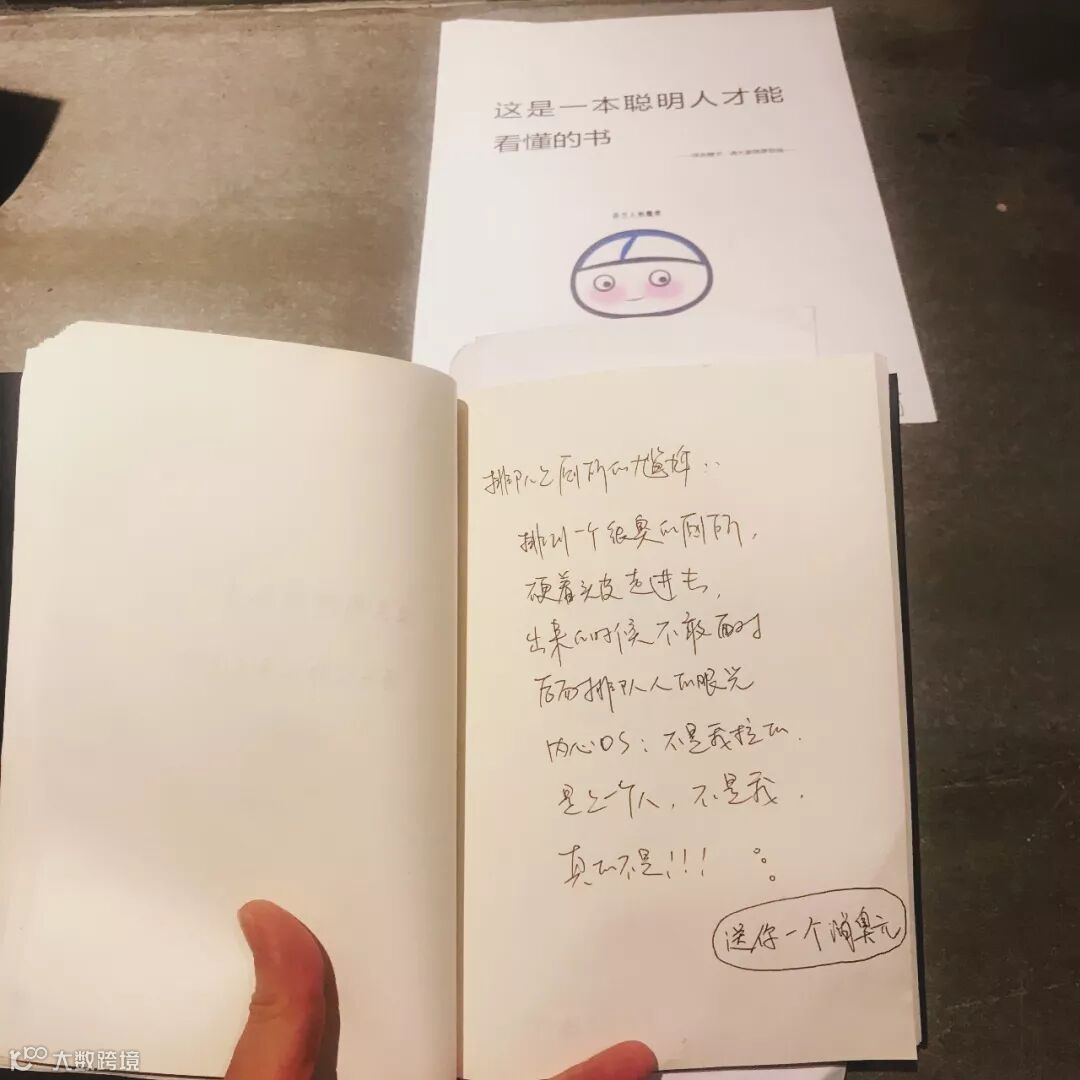 这是一本聪明人才能
看懂的书
排队上厕所的尴尬：
排到一个很臭的厕所，
硬着头皮走进去，
出来的时候不敢面对
后面排队人的眼光
内心OS：不是我拉的.
是上一个人，不是我.
真的不是!!!
送你一个消臭元
大数跨境